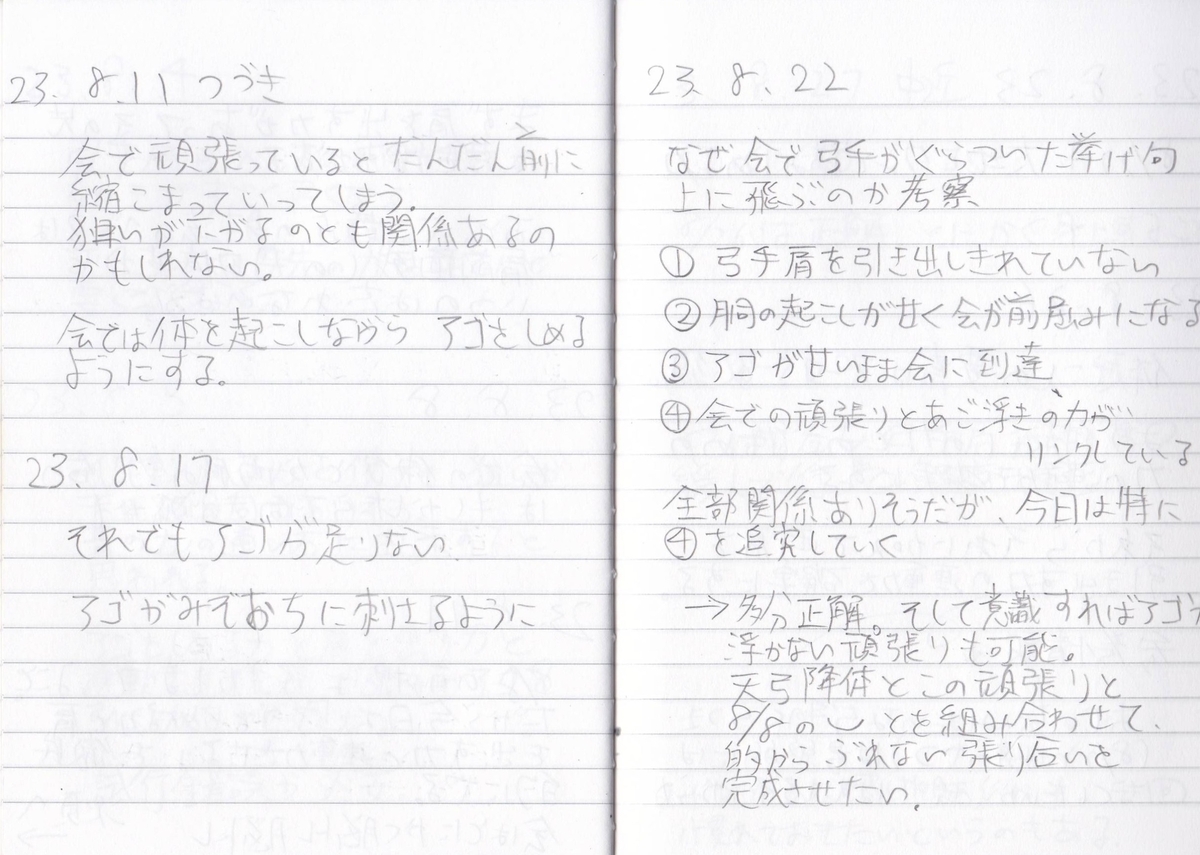 23. 8.11 つづき
会で頑張っているとだんだん前に
縮こまっていってしまう。
狙いが下がるのとも関係あるの
かもしれない。
会では体を起こしながら アゴをしめる
ようにする。
23. 8. 17
それでもアゴが足りない
アゴがみぞおちに刺さるように
23. 8. 22
なぜ会で弓手がぐらついた挙げ句
上に飛ぶのか考察
① 弓手肩を引き出しきれていない
② 胴の起こしが甘く会が前屈みになる
③ アゴが甘いまま会に到達
④ 会での頑張りとあご浮きの力が
リンクしている
全部関係ありそうだが、今日は特に
④を追究していく
→多分正解。そして意識すればアゴ
浮かない頑張りも可能。
大弓降体とこの頑張りと
8/8の し とを組み合わせて、
的からぶれない張り合いを
完成させたい。